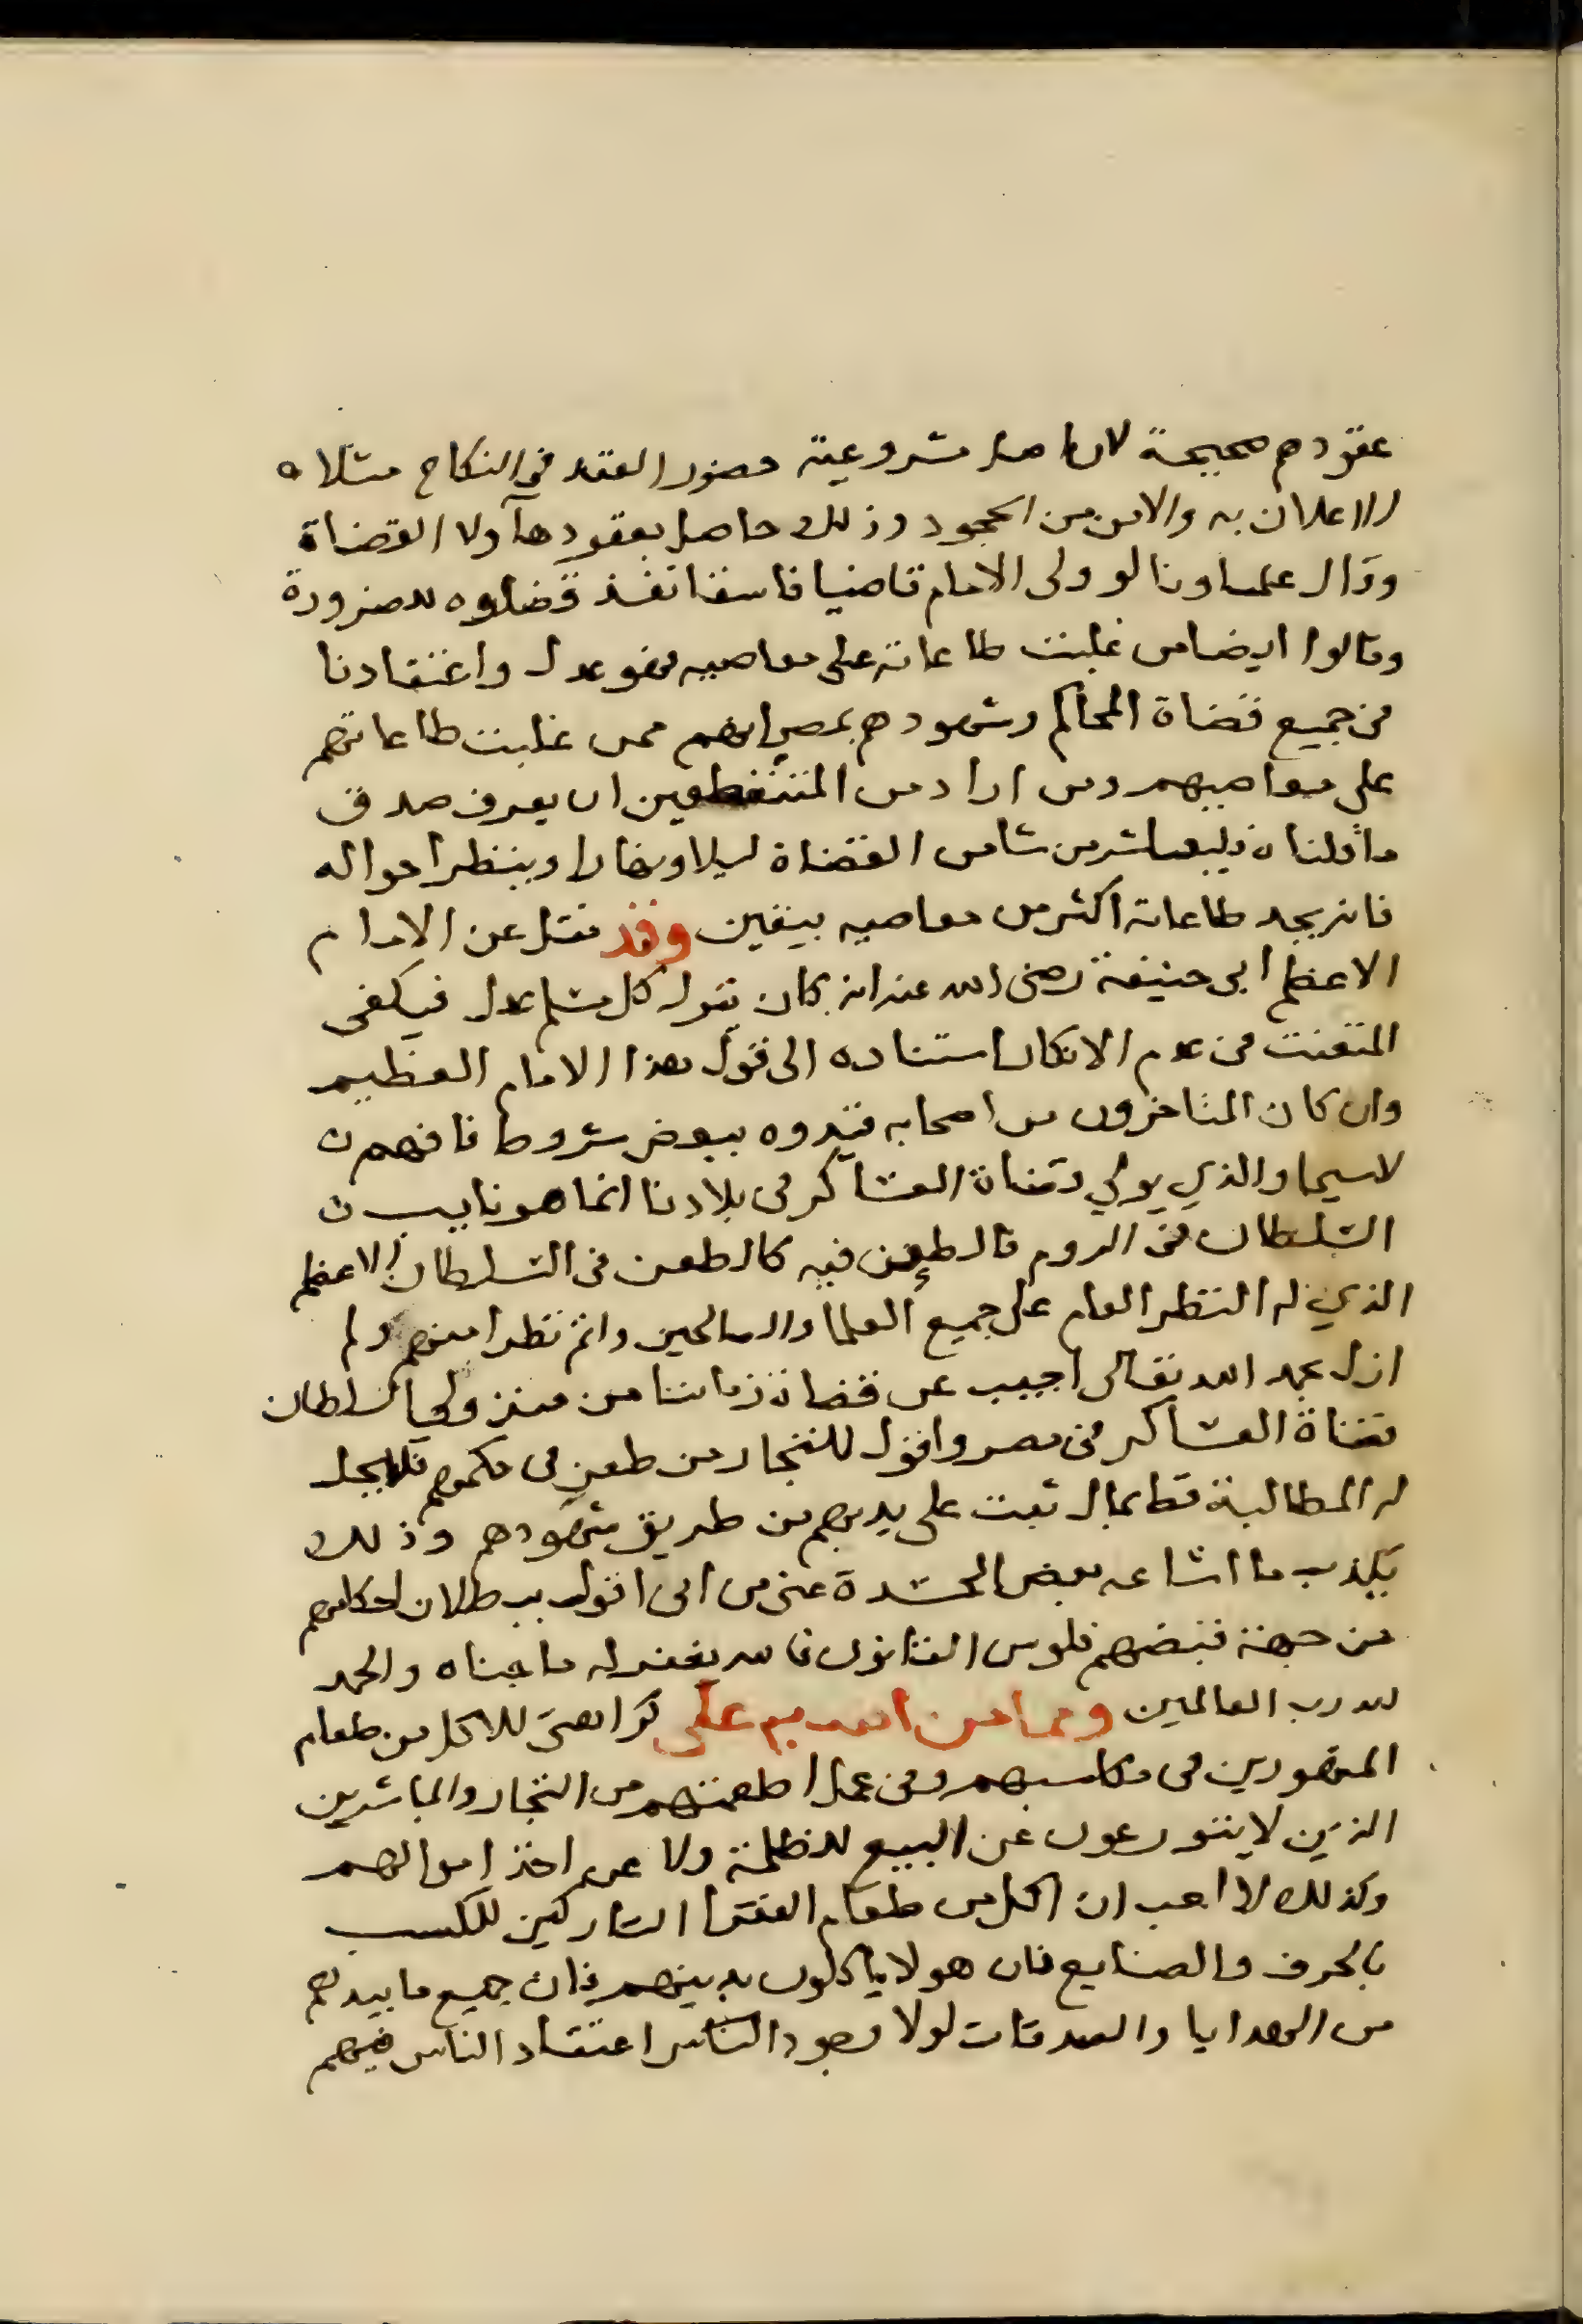 عقودهم صحيحة لان اصل مشروعية حضور العقد في النكاح مثلا
الاعلان به والامن من الجحود وذلك حاصل بعقود هاولا القضاة
وقال علماونا لو ولى الامام قاضيا فاسقا نفذ قضاوه للضرورة
وقالوا ايضا من غلبت طاعاته على معاصيه فهو عدل واعتقادنا
في جميع قضاة المحاكم وشهودهم بمصر انهم ممن غلبت طاعاتهم
على معاصيهم ومن اراد من المتنطعين ان يعرف صدق
ما قلناه فليعاشر من شا من القضاة ليلا ونهارا وينظر احواله
فانه يجد طاعاته اكثر من معاصيه بيقين وقد نقل عن الامام
الاعظم ابي حنيفة رضى الله عنه انه كان يقول كل مسلم عدل فيكفى
المتعنت في عدم الانكار استناده الى قول هذا الامام العظيم
وان كان المتاخرون من اصحابه قيدوه ببعض شروط فافهم
لاسيما والذي يولي قضاة العساكر في بلادنا انما هو نايب
السلطان في الروم فالطعن فيه كالطعن في السلطان الاعظم
الذي له النظر العام على جميع العلما والصالحين واتم نظرا منهم ولم
ازل بحمد الله تعالى اجيب عن قضاة زماننا من منذ ولي السلطان
قضاة العساكر في مصر واقول للتجار من طعن في حكمهم فلا يحل
له المطالبة قط بمال ثبت على يديهم من طريق شهودهم وذلك
يكذب ما اشاعه بعض الحسدة عني من اني اقول ببطلان احكامهم
من جهة قبضهم فلوس القانون فالله يغفر له ما جناه والحمد
لله رب العالمين ومما من الله به علي كراهتي للاكل من طعام
المتهورين في مكاسبهم وفي عمل اطعمتهم من التجار والمباشرين
الذين لا يتورعون عن البيع للظلمة ولا عن اخذ اموالهم
وكذلك لا احب ان اكل من طعام الفقرا التاركين للكسب
بالحرف والصنايع فان هولا ياكلون بدينهم فان جميع ما بيدهم
من الهدايا والصدقات لولا وجود الناس اعتقاد الناس فيهم